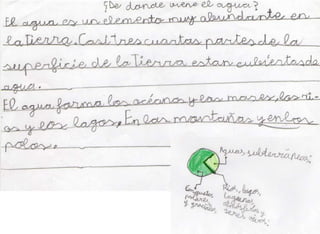 ¿De donde viene el agua?
El agua es un elemento muy abundante en
la Tierra. Casi tres cuartas partes de la
superficie de la Tierra estan cubiertas de
agua.
El agua forma los océanos y los mares, los rí-
os y los lagos. En las montañas y en los
polos.
Aguas subterráneas
Casquetes
polares
y glaciares
Ríos, lagos,
lagunas,
atmósfera y
seres vivos